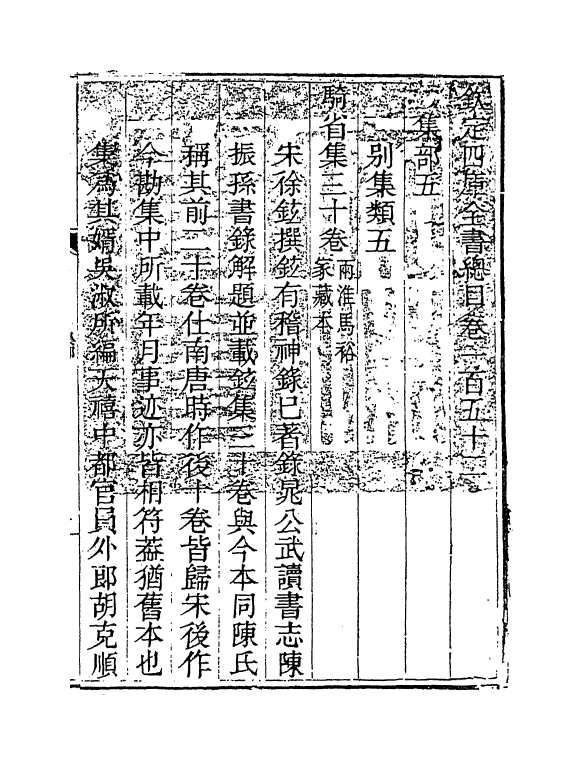 欽定四庫全書總目卷一百五十二
集部五
別集類五
騎省集三十卷兩淮馬裕家藏本
宋徐鉉撰鉉有稽神錄已著錄晁公武讀書志陳
振孫書錄解題並載鉉集三十卷與今本同陳氏
稱其前二十卷仕南唐時作後十卷皆歸宋後作
今勘集中所載年月事迹亦皆相符葢猶舊本也
集爲其婿吳淑所編天禧中都官員外郎胡克順